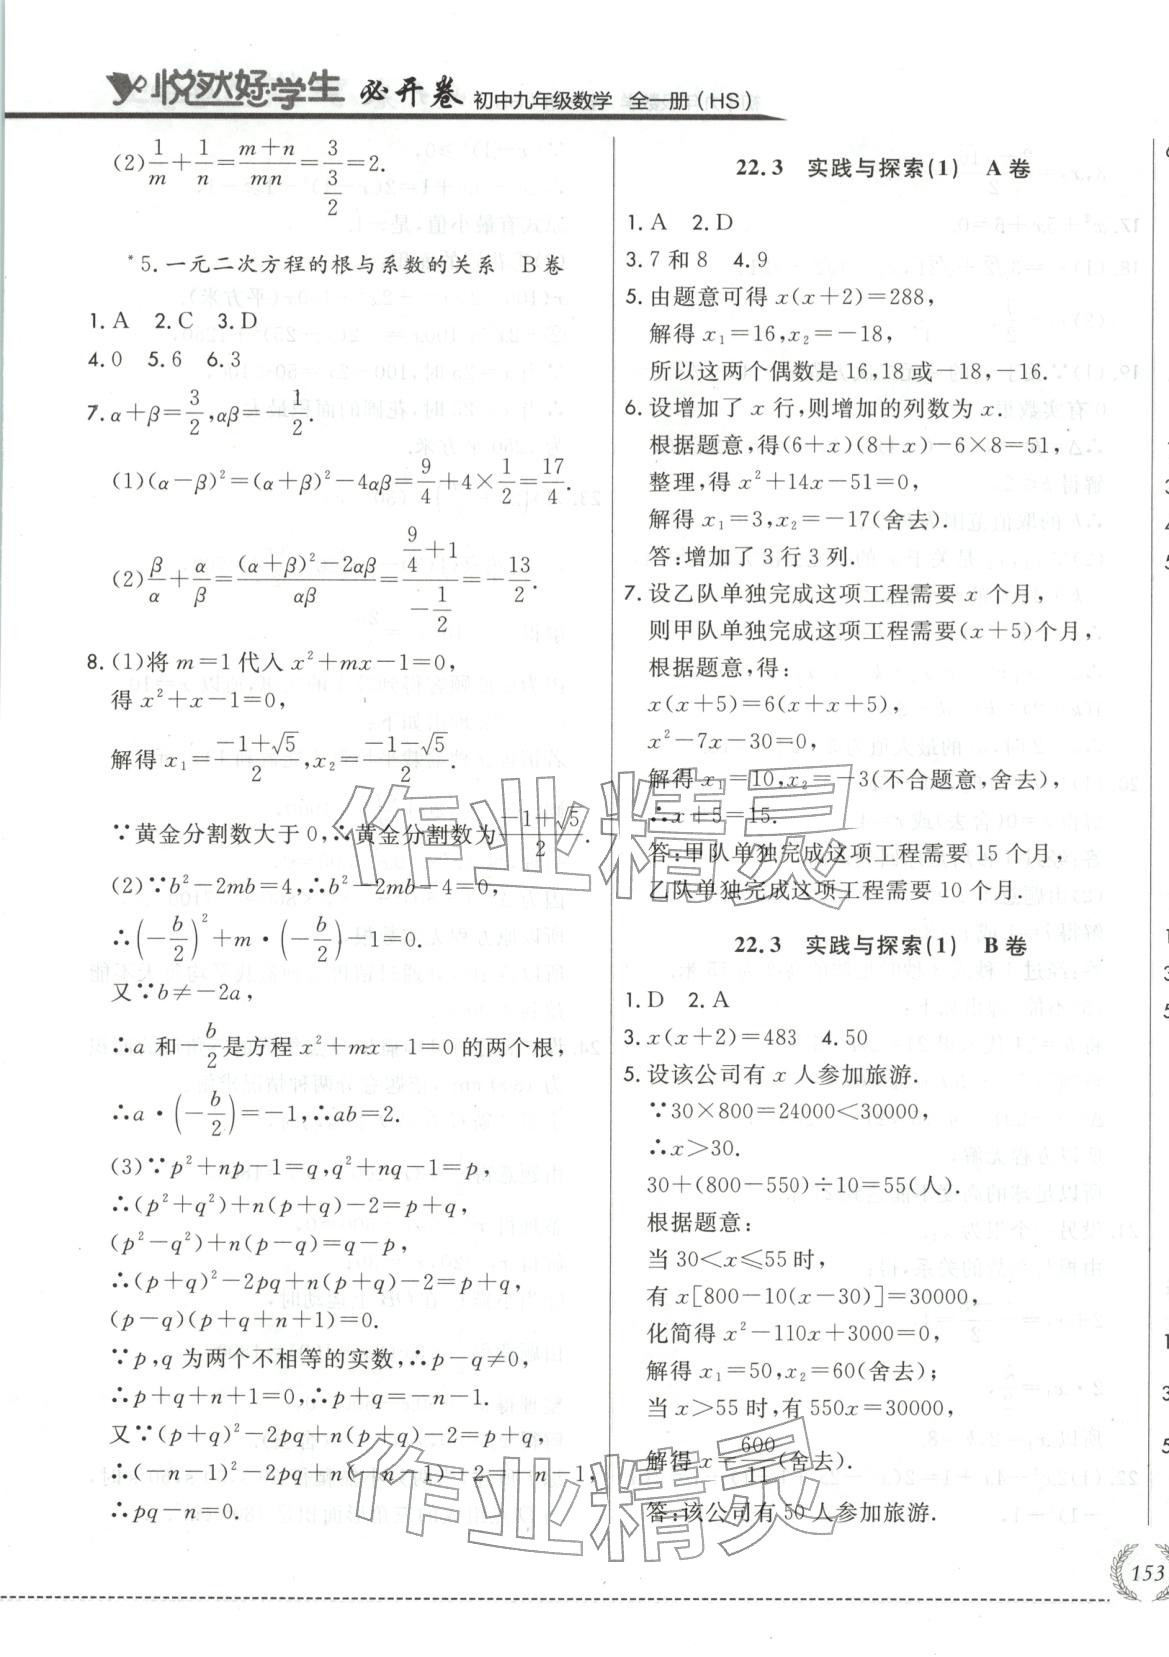 悦然好学生 必开卷 初中九年级数学 全一册(HS)
(2) 1/m + 1/n = (m+n)/mn = 3/(3/2) = 2.
*5.一元二次方程的根与系数的关系 B卷
1. A 2. C 3. D
4. 0 5. 6 6. 3
7. α+β=3/2, αβ=-1/2.
(1)(α-β)²=(α+β)²-4αβ=9/4+4×1/2=17/4.
(2) β/α+α/β=((α+β)²-2αβ)/αβ=(9/4+1)/(-1/2)=-13/2.
8. (1)将 m=1 代入 x²+mx-1=0,
得 x²+x-1=0,
解得 x₁=(-1+√5)/2, x₂=(-1-√5)/2.
∵黄金分割数大于 0,∴黄金分割数为(-1+√5)/2.
(2)∵b²-2mb=4,∴b²-2mb-4=0,
∴(-b/2)²+m·(-b/2)-1=0.
又∵b≠-2a,
∴a 和-b/2是方程 x²+mx-1=0 的两个根,
∴a·(-b/2)=-1,∴ab=2.
(3)∵p²+np-1=q,q²+nq-1=p,
∴(p²+q²)+n(p+q)-2=p+q,
(p²-q²)+n(p-q)=q-p,
∴(p+q)²-2pq+n(p+q)-2=p+q,
(p-q)(p+q+n+1)=0.
∵p,q 为两个不相等的实数,∴p-q≠0,
∴p+q+n+1=0,∴p+q=-n-1.
又∵(p+q)²-2pq+n(p+q)-2=p+q,
∴(-n-1)²-2pq+n(-n-1)-2=-n-1,
∴pq-n=0.
22.3 实践与探索(1) A卷
1. A 2. D
3. 7 和 8 4. 9
5. 由题意可得 x(x+2)=288,
解得 x₁=16,x₂=-18,
所以这两个偶数是 16,18 或-18,-16.
6. 设增加了 x 行,则增加的列数为 x.
根据题意,得(6+x)(8+x)-6×8=51,
整理,得 x²+14x-51=0,
解得 x₁=3,x₂=-17(舍去).
答:增加了 3 行 3 列.
7. 设乙队单独完成这项工程需要 x 个月,
则甲队单独完成这项工程需要(x+5)个月,
根据题意,得:
x(x+5)=6(x+x+5),
x²-7x-30=0,
解得 x₁=10,x₂=-3(不合题意,舍去),
∴x+5=15.
答:甲队单独完成这项工程需要 15 个月,
乙队单独完成这项工程需要 10 个月.
22.3 实践与探索(1) B卷
1. D 2. A
3. x(x+2)=483 4. 50
5. 设该公司有 x 人参加旅游.
∵30×800=24000<30000,
∴x>30.
30+(800-550)÷10=55(人).
根据题意:
当 30<x≤55 时,
有 x[800-10(x-30)]=30000,
化简得 x²-110x+3000=0,
解得 x₁=50,x₂=60(舍去);
当 x>55 时,有 550x=30000,
解得 x=600/11(舍去).
答:该公司有 50 人参加旅游.
作业精灵
作业精灵
153